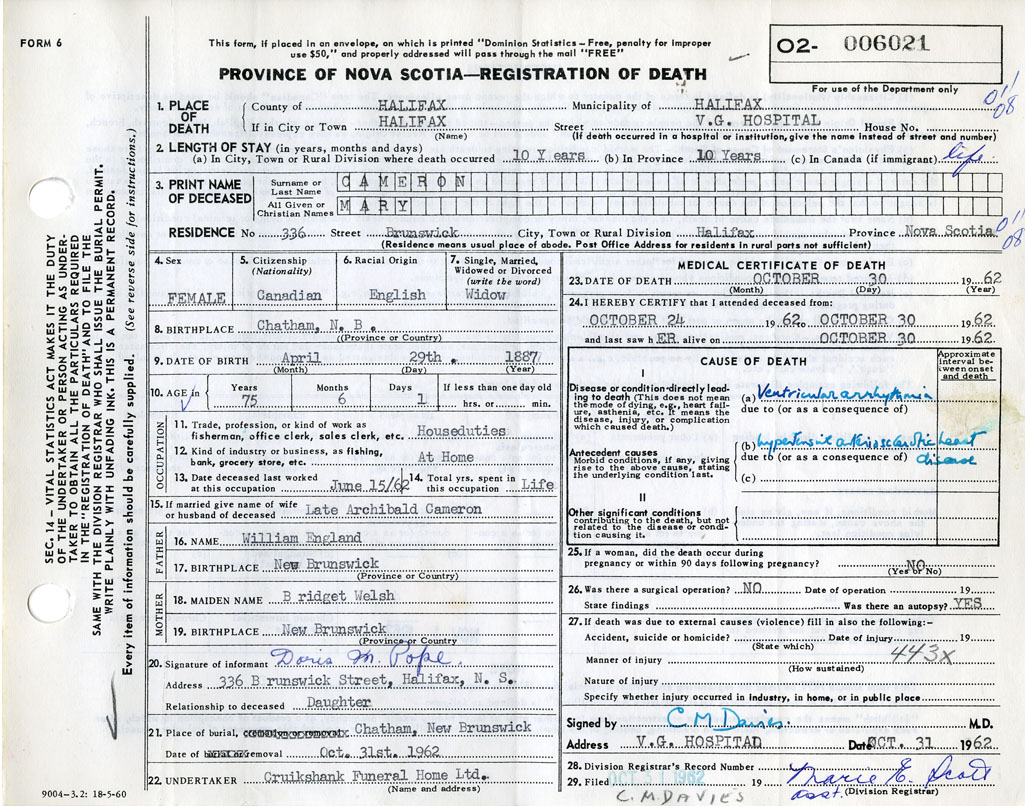 FORM 6
This form, if placed in an envelope, on which is printed "Dominion Statistics – Free, penalty for improper
use $50," and properly addressed will pass through the mail "FREE"
PROVINCE OF NOVA SCOTIA—REGISTRATION OF DEATH
02- 006021
For use of the Department only
SEC. 14 – VITAL STATISTICS ACT MAKES IT THE DUTY
OF THE UNDERTAKER OR PERSON ACTING AS UNDER-
TAKER TO OBTAIN ALL THE PARTICULARS REQUIRED
IN THE "REGISTRATION OF DEATH" AND TO FILE THE
SAME WITH THE DIVISION REGISTRAR WHO SHALL ISSUE THE BURIAL PERMIT.
WRITE PLAINLY WITH UNFADING INK. THIS IS A PERMANENT RECORD.
Every item of information should be carefully supplied. (See reverse side for instructions.)
1. PLACE OF DEATH
County of HALIFAX Municipality of HALIFAX 01/08
If in City or Town HALIFAX Street V.G. HOSPITAL House No.
(Name) (If death occurred in a hospital or institution, give the name instead of street and number)
2. LENGTH OF STAY (in years, months and days)
(a) In City, Town or Rural Division where death occurred 10 Years (b) In Province 10 Years (c) In Canada (if immigrant) life
3. PRINT NAME OF DECEASED
Surname or Last Name CAMERON
All Given or Christian Names MARY
RESIDENCE No 336 Street Brunswick City, Town or Rural Division Halifax Province Nova Scotia 01/08
(Residence means usual place of abode. Post Office Address for residents in rural parts not sufficient)
4. Sex FEMALE
5. Citizenship (Nationality) Canadian
6. Racial Origin English
7. Single, Married, Widowed or Divorced (write the word) Widow
8. BIRTHPLACE Chatham, N. B.
(Province or Country)
9. DATE OF BIRTH April 29th. 1887
(Month) (Day) (Year)
10. AGE in Years 75 Months 6 Days 1 If less than one day old hrs. or min.
OCCUPATION
11. Trade, profession, or kind of work as
fisherman, office clerk, sales clerk, etc. Houseduties
12. Kind of industry or business, as fishing,
bank, grocery store, etc. At Home
13. Date deceased last worked at this occupation June 15/62
14. Total yrs. spent in this occupation Life
15. If married give name of wife or husband of deceased Late Archibald Cameron
FATHER
16. NAME William England
17. BIRTHPLACE New Brunswick
(Province or Country)
MOTHER
18. MAIDEN NAME B ridget Welsh
19. BIRTHPLACE New Brunswick
(Province or Country
20. Signature of informant Doris M. Pope.
Address 336 B runswick Street, Halifax, N. S.
Relationship to deceased Daughter
21. Place of burial, Chatham, New Brunswick
Date of removal Oct. 31st. 1962
22. UNDERTAKER Cruikshank Funeral Home Ltd.
(Name and address)
9004–3.2: 18-5-60
MEDICAL CERTIFICATE OF DEATH
23. DATE OF DEATH OCTOBER 30 1962
(Month) (Day) (Year)
24. I HEREBY CERTIFY that I attended deceased from:
OCTOBER 24 1962. OCTOBER 30 1962
and last saw hER alive on OCTOBER 30 1962.
CAUSE OF DEATH
Approximate interval between onset and death
I
Disease or condition directly lead-
ing to death (This does not mean
the mode of dying, e.g., heart fail-
ure, asthenia, etc. It means the
disease, injury, or complication
which caused death.)
(a) Ventricular arrhythmia
due to (or as a consequence of)
Antecedent causes
Morbid conditions, if any, giving
rise to the above cause, stating
the underlying condition last.
(b) hypertensive arteriosclerotic heart
due to (or as a consequence of) disease
(c)
II
Other significant conditions
contributing to the death, but not
related to the disease or condi-
tion causing it.
25. If a woman, did the death occur during
pregnancy or within 90 days following pregnancy? NO
(Yes or No)
26. Was there a surgical operation? NO Date of operation 19
State findings Was there an autopsy? YES
27. If death was due to external causes (violence) fill in also the following:–
Accident, suicide or homicide? Date of injury 19
(State which)
443x
Manner of injury
(How sustained)
Nature of injury
Specify whether injury occurred in industry, in home, or in public place
Signed by C M Davies. M.D.
Address V.G. HOSPITAL Date OCT. 31 1962
28. Division Registrar's Record Number
29. Filed OCT 31 1962 19 Marie E. Scott
asst. (Division Registrar)
C. M. DAVIES